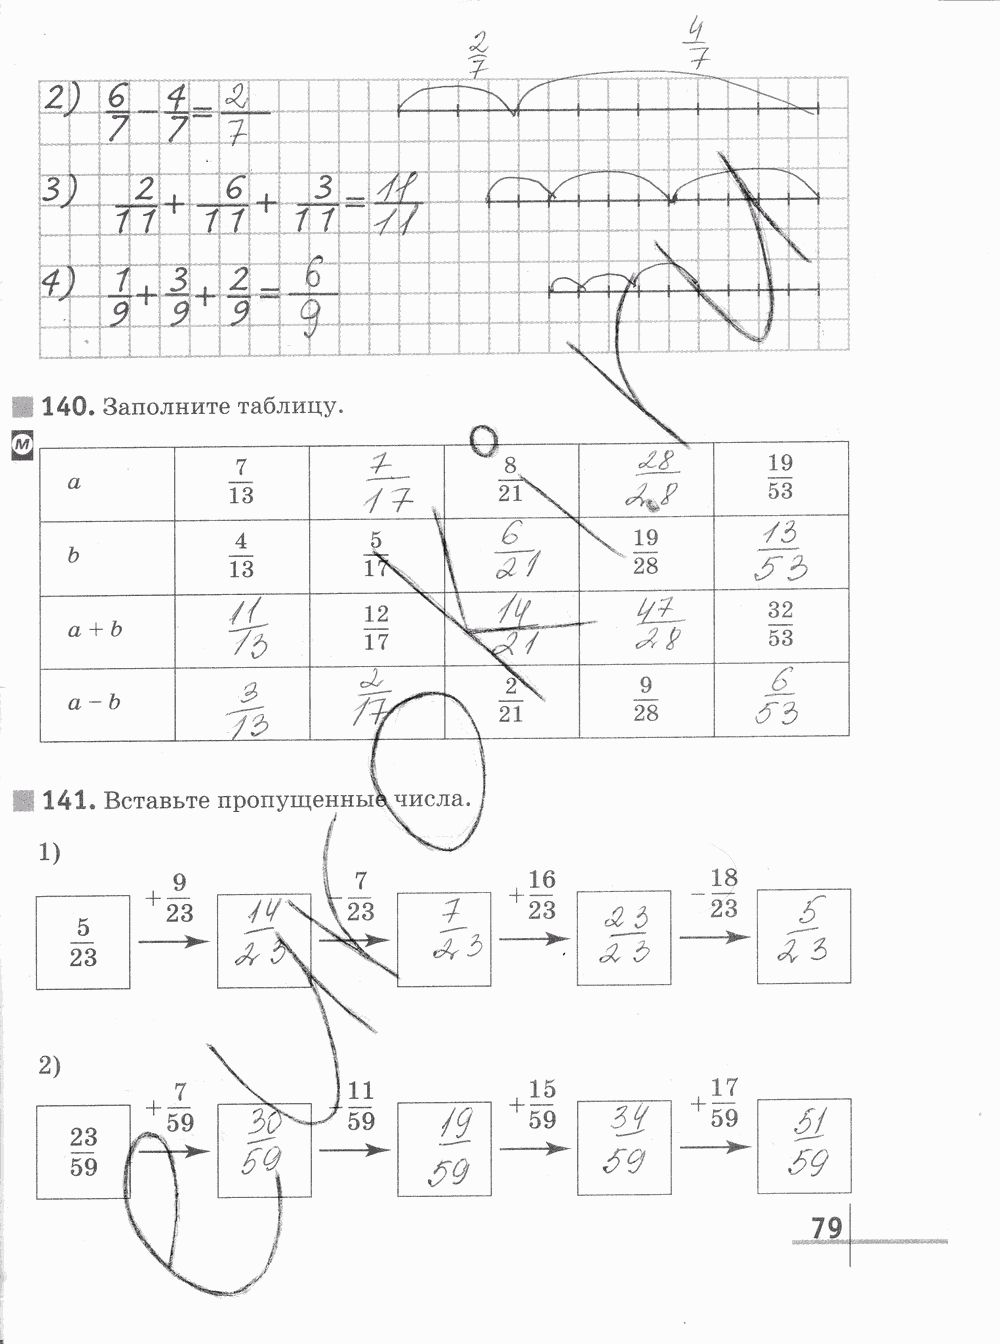 2/7 4/7
2) 6/7 - 4/7 = 2/7
3) 2/11 + 6/11 + 3/11 = 11/11
4) 1/9 + 3/9 + 2/9 = 6/9
140. Заполните таблицу.
М
a 7/13 7/17 8/21 28/28 19/53
b 4/13 5/17 6/21 19/28 13/53
a + b 11/13 12/17 14/21 47/28 32/53
a - b 3/13 2/17 2/21 9/28 6/53
141. Вставьте пропущенные числа.
1)
5/23 + 9/23 14/23 - 7/23 7/23 + 16/23 23/23 - 18/23 5/23
2)
23/59 + 7/59 30/59 - 11/59 19/59 + 15/59 34/59 + 17/59 51/59
79